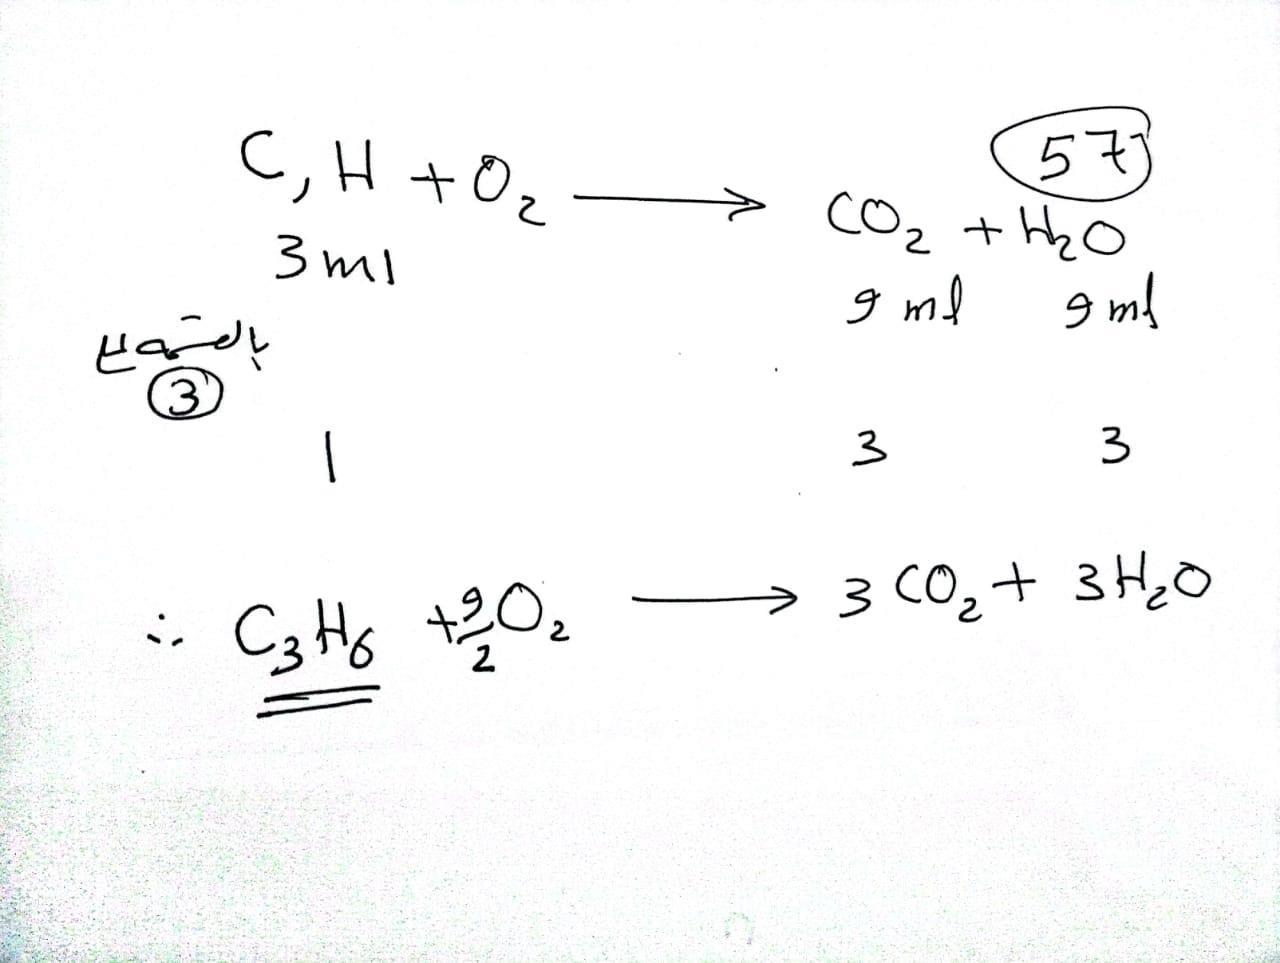 57
C, H + O₂ ⟶ CO₂ + H₂O
3 ml 9 ml 9 ml
3
1 3 3
∴ C₃H₆ + 9/2 O₂ ⟶ 3 CO₂ + 3 H₂O